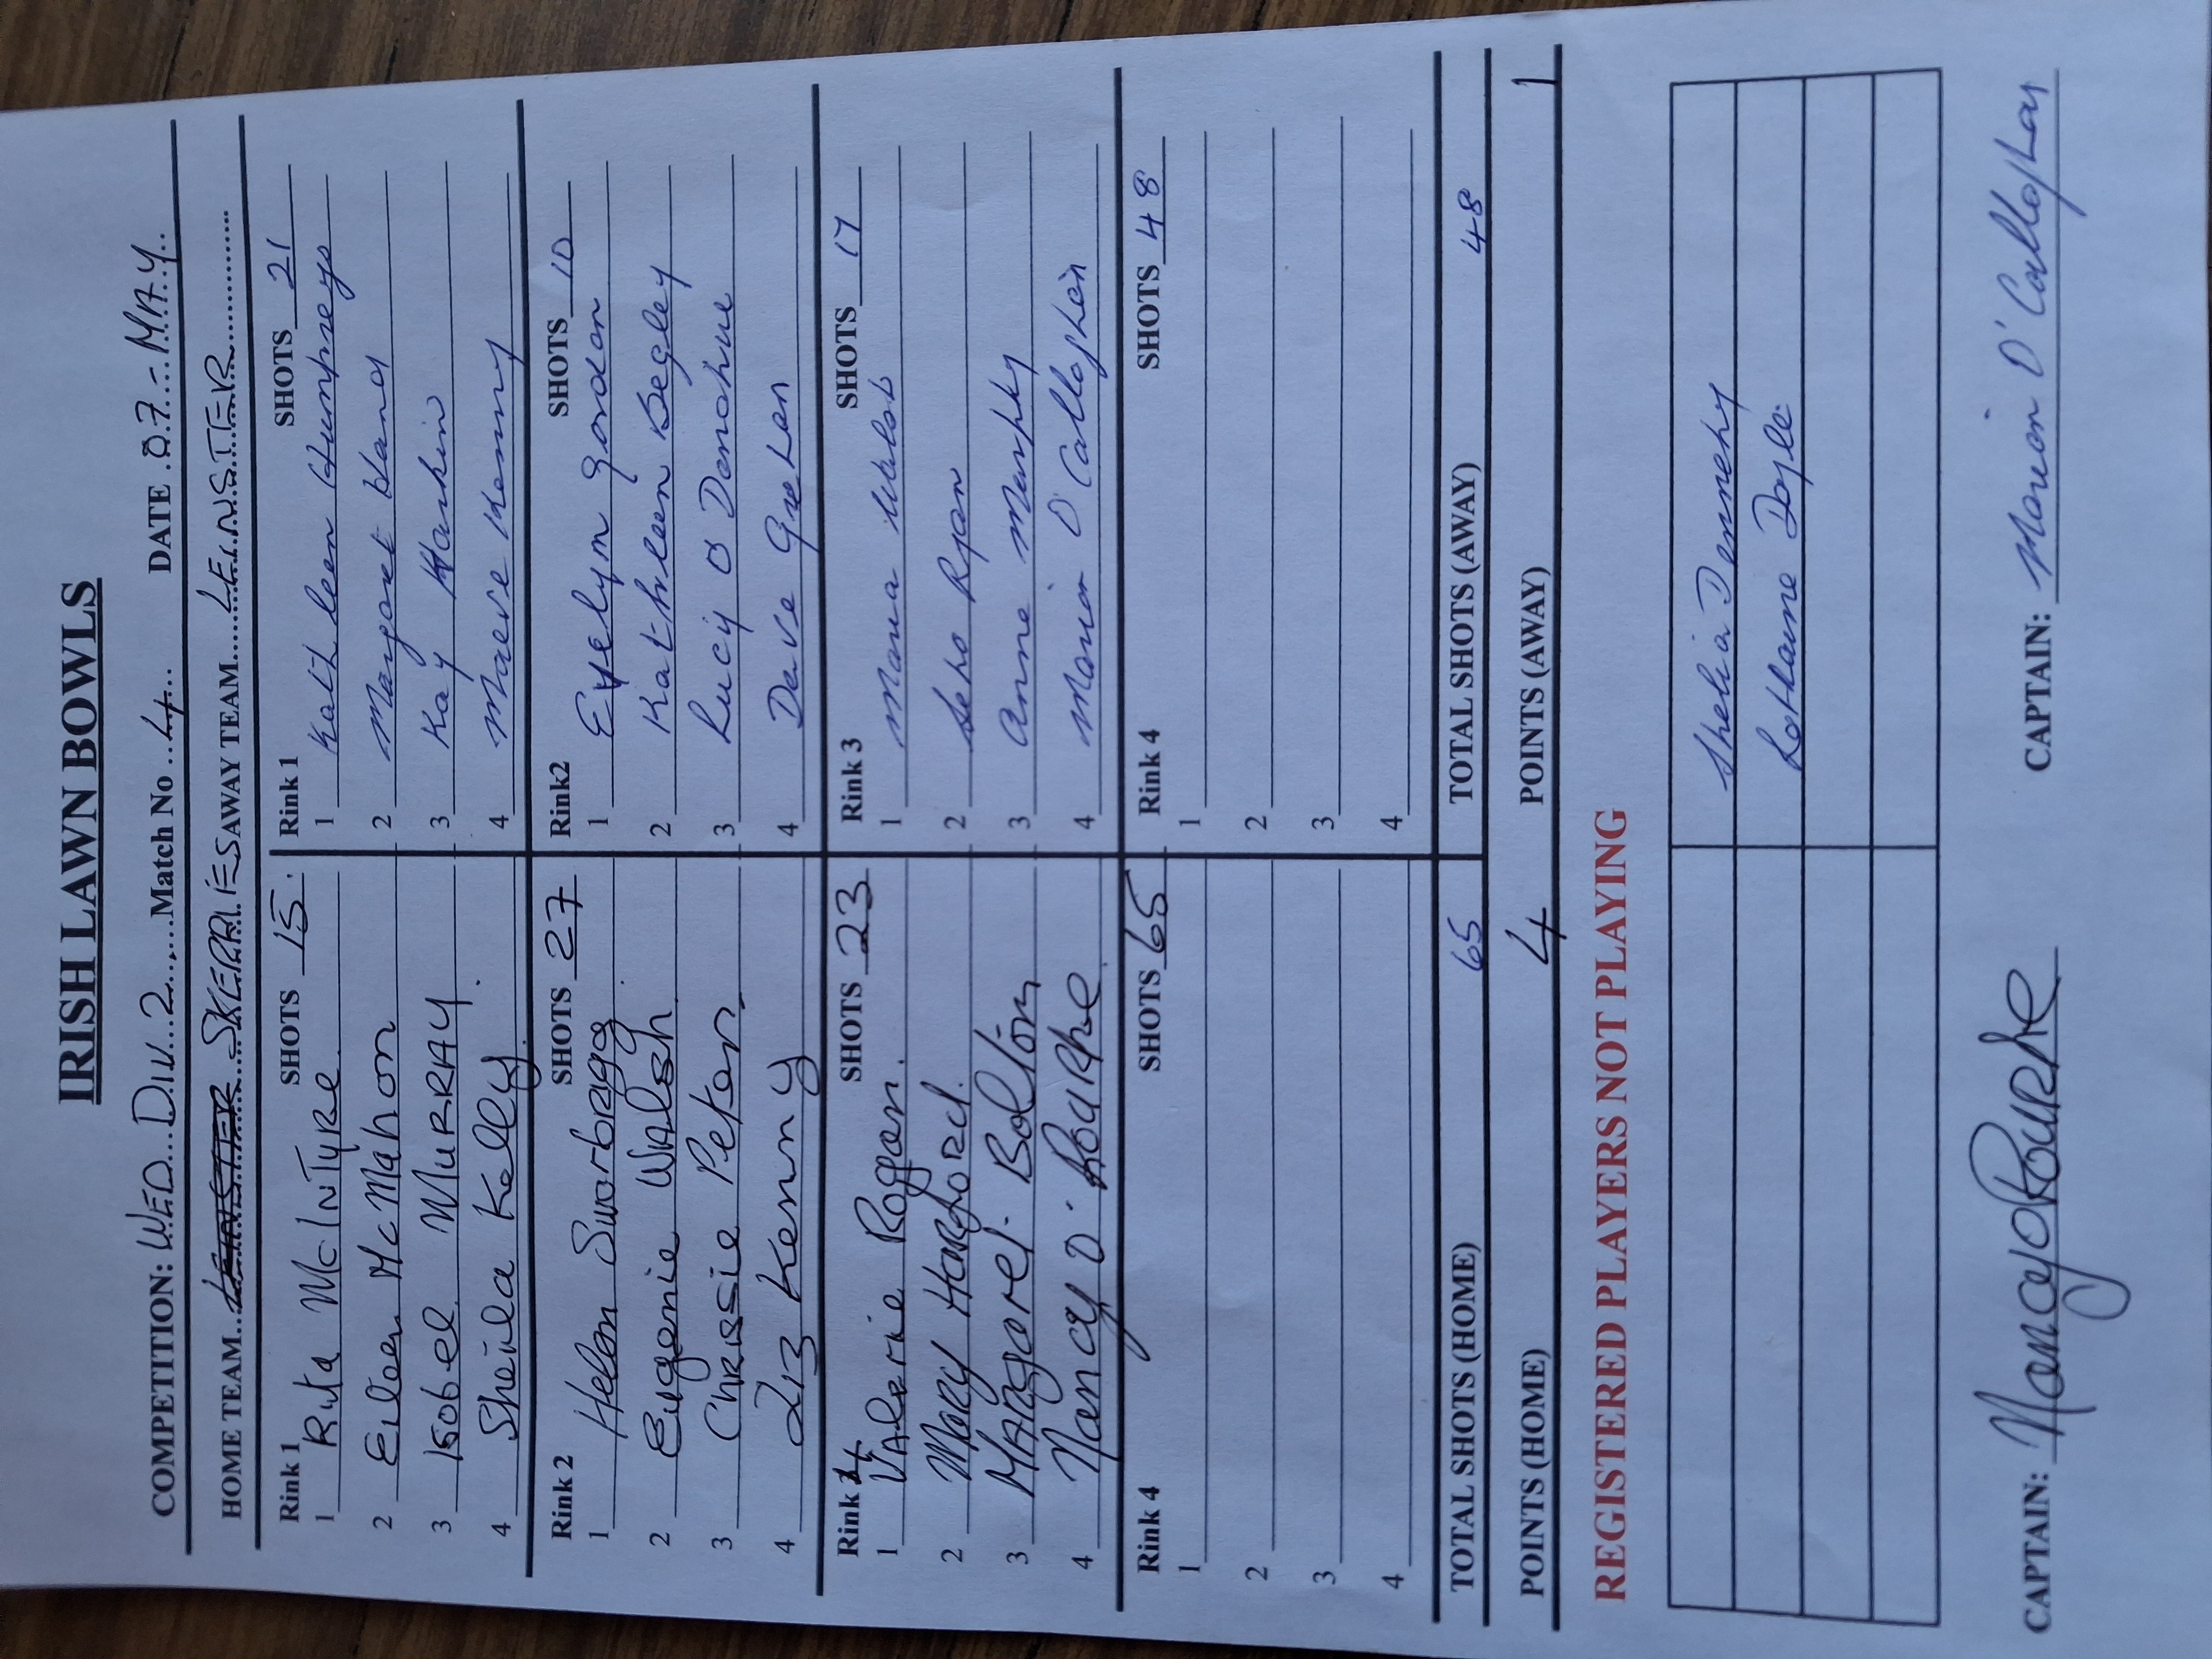 IRISH LAWN BOWLS
COMPETITION: WED DIV 2 Match No 4 DATE 07-MAY
HOME TEAM SKERRIES AWAY TEAM LEINSTER
Rink 1 SHOTS 15 Rink 1 SHOTS 21
1 Rita McINTYRE 1 Kathleen Humphreys
2 Eileen McMahon 2 Margaret
3 Isobel MURRAY 3 Kay Harkin
4 Sheila Kelly 4 Maeve Kenny
Rink 2 SHOTS 27 Rink2 SHOTS 10
1 Helen Swarbrigg 1 Evelyn Gordon
2 Eugenie Walsh 2 Kathleen Begley
3 Chrissie 3 Lucy O Donohue
4 Liz Kenny 4 Dave
Rink SHOTS 23 Rink 3 SHOTS 17
1 Valerie Rogan 1
2 Mary Harford 2 Ryan
3 Margaret Bolton 3 Anne Murphy
4 Nancy O'Rourke 4 Marion O'Callaghan
Rink 4 SHOTS 65 Rink 4 SHOTS 48
1 1
2 2
3 3
4 4
TOTAL SHOTS (HOME) 65 TOTAL SHOTS (AWAY) 48
POINTS (HOME) 4 POINTS (AWAY) 1
REGISTERED PLAYERS NOT PLAYING
Shelia Dennehy
Lorraine Doyle
CAPTAIN: Nancy O'Rourke CAPTAIN: Marion O'Callaghan